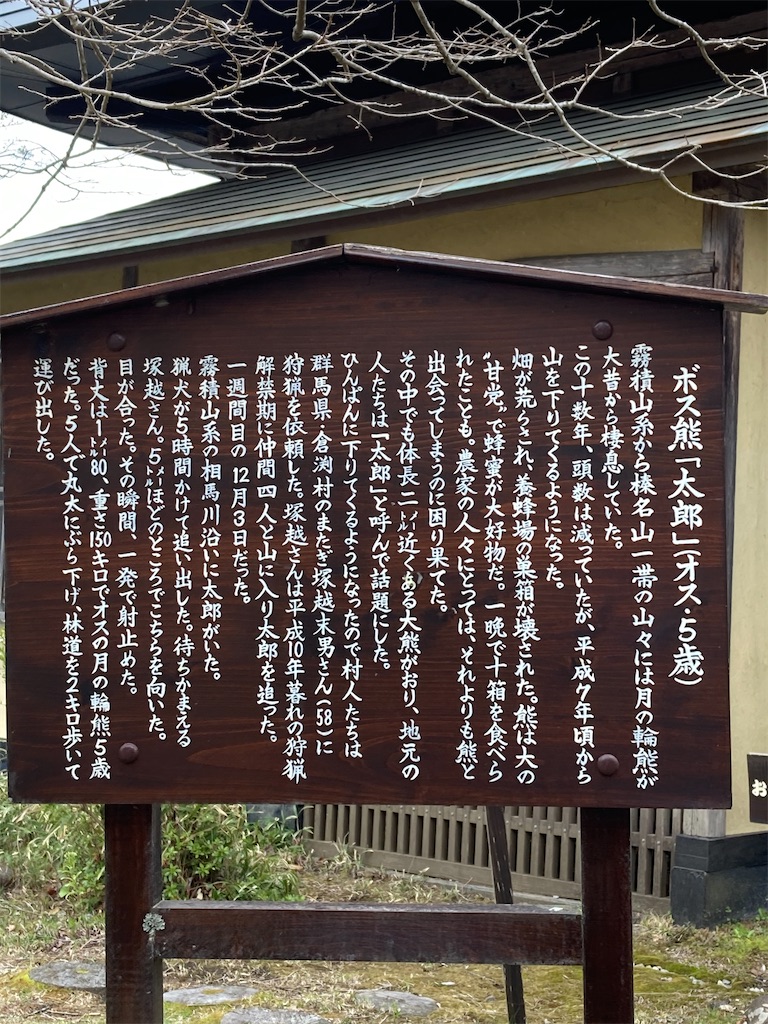 ボス熊「太郎」(オス・5歳)
霧積山系から榛名山一帯の山々には月の輪熊が
大昔から棲息していた。
この十数年、頭数は減っていたが、平成7年頃から
山を下りてくるようになった。
畑が荒らされ、養蜂場の巣箱が壊された。熊は大の
〝甘党〟で蜂蜜が大好物だ。一晩で十箱を食べら
れたことも。農家の人々にとっては、それよりも熊と
出会ってしまうのに困り果てた。
その中でも体長二㍍近くある大熊がおり、地元の
人たちは「太郎」と呼んで話題にした。
ひんぱんに下りてくるようになったので村人たちは
群馬県・倉渕村のまたぎ塚越末男さん(58)に
狩猟を依頼した。塚越さんは平成10年暮れの狩猟
解禁期に仲間四人と山に入り太郎を追った。
一週間目の12月3日だった。
霧積山系の相馬川沿いに太郎がいた。
猟犬が5時間かけて追い出した。待ちかまえる
塚越さん。5㍍ほどのところでこちらを向いた。
目が合った。その瞬間、一発で射止めた。
背丈は1㍍80、重さ150キロでオスの月の輪熊5歳
だった。5人で丸太にぶら下げ、林道を2キロ歩いて
運び出した。
お